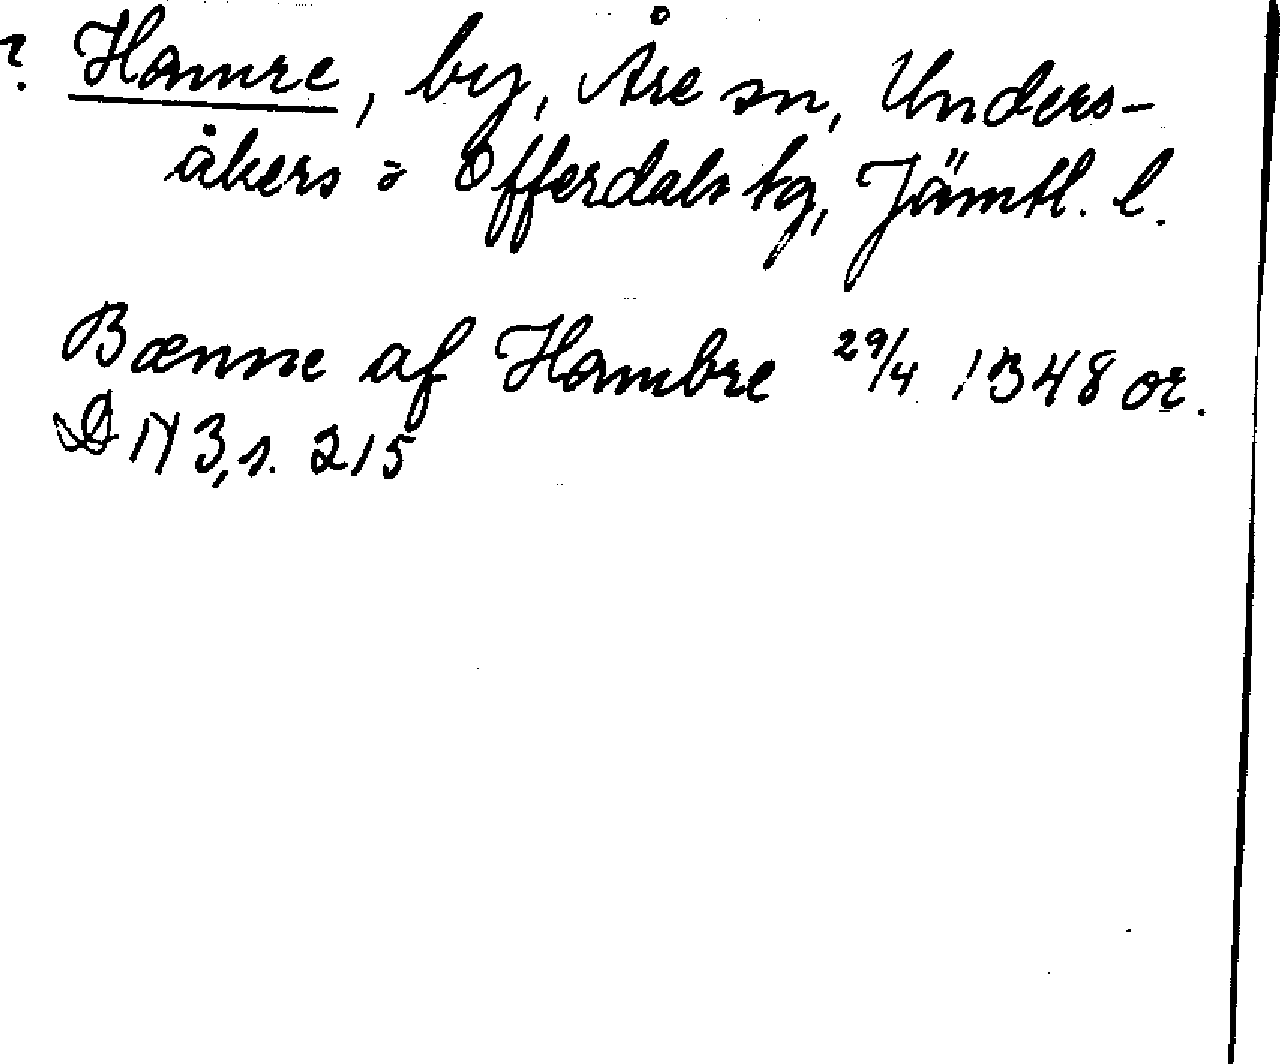 ? Hamre, by, Åre sn, Unders-
åkers o Offerdals tg, Jämtl. l.
Bænne af Hambre 29/4 1348 or.
DN 3, s. 215